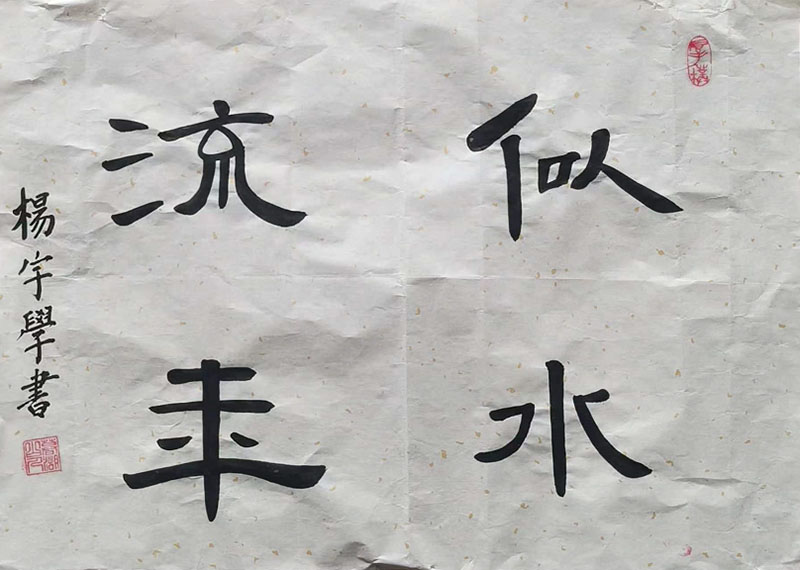 似水
流年
楊宇學書